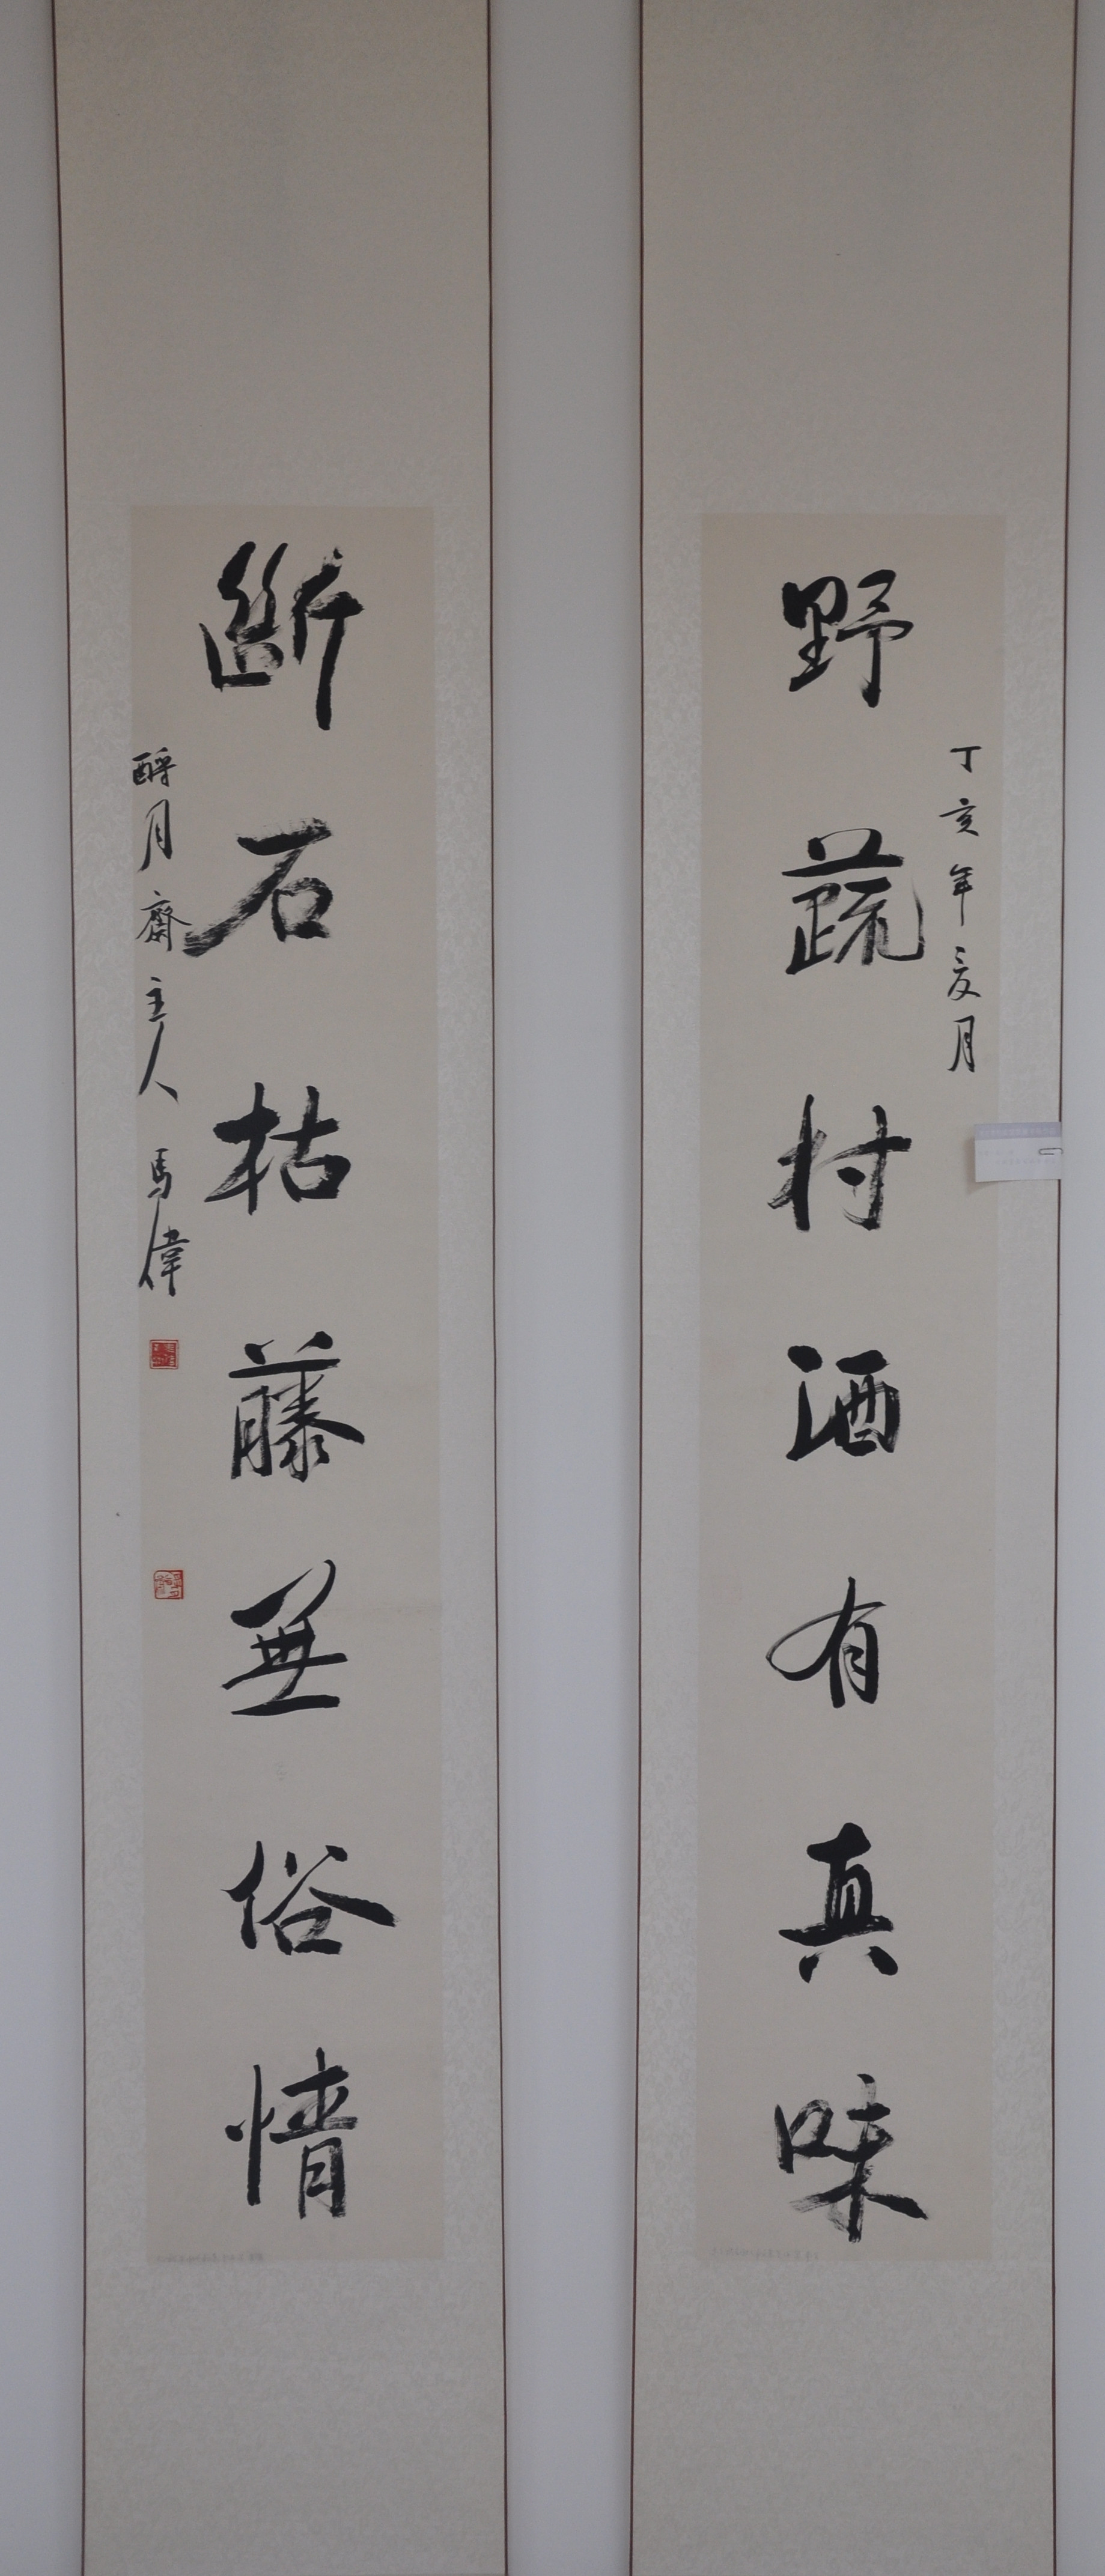 野蔬村酒有真味
丁亥年
月
斷石枯藤無俗情
醉月齋主人 馬偉